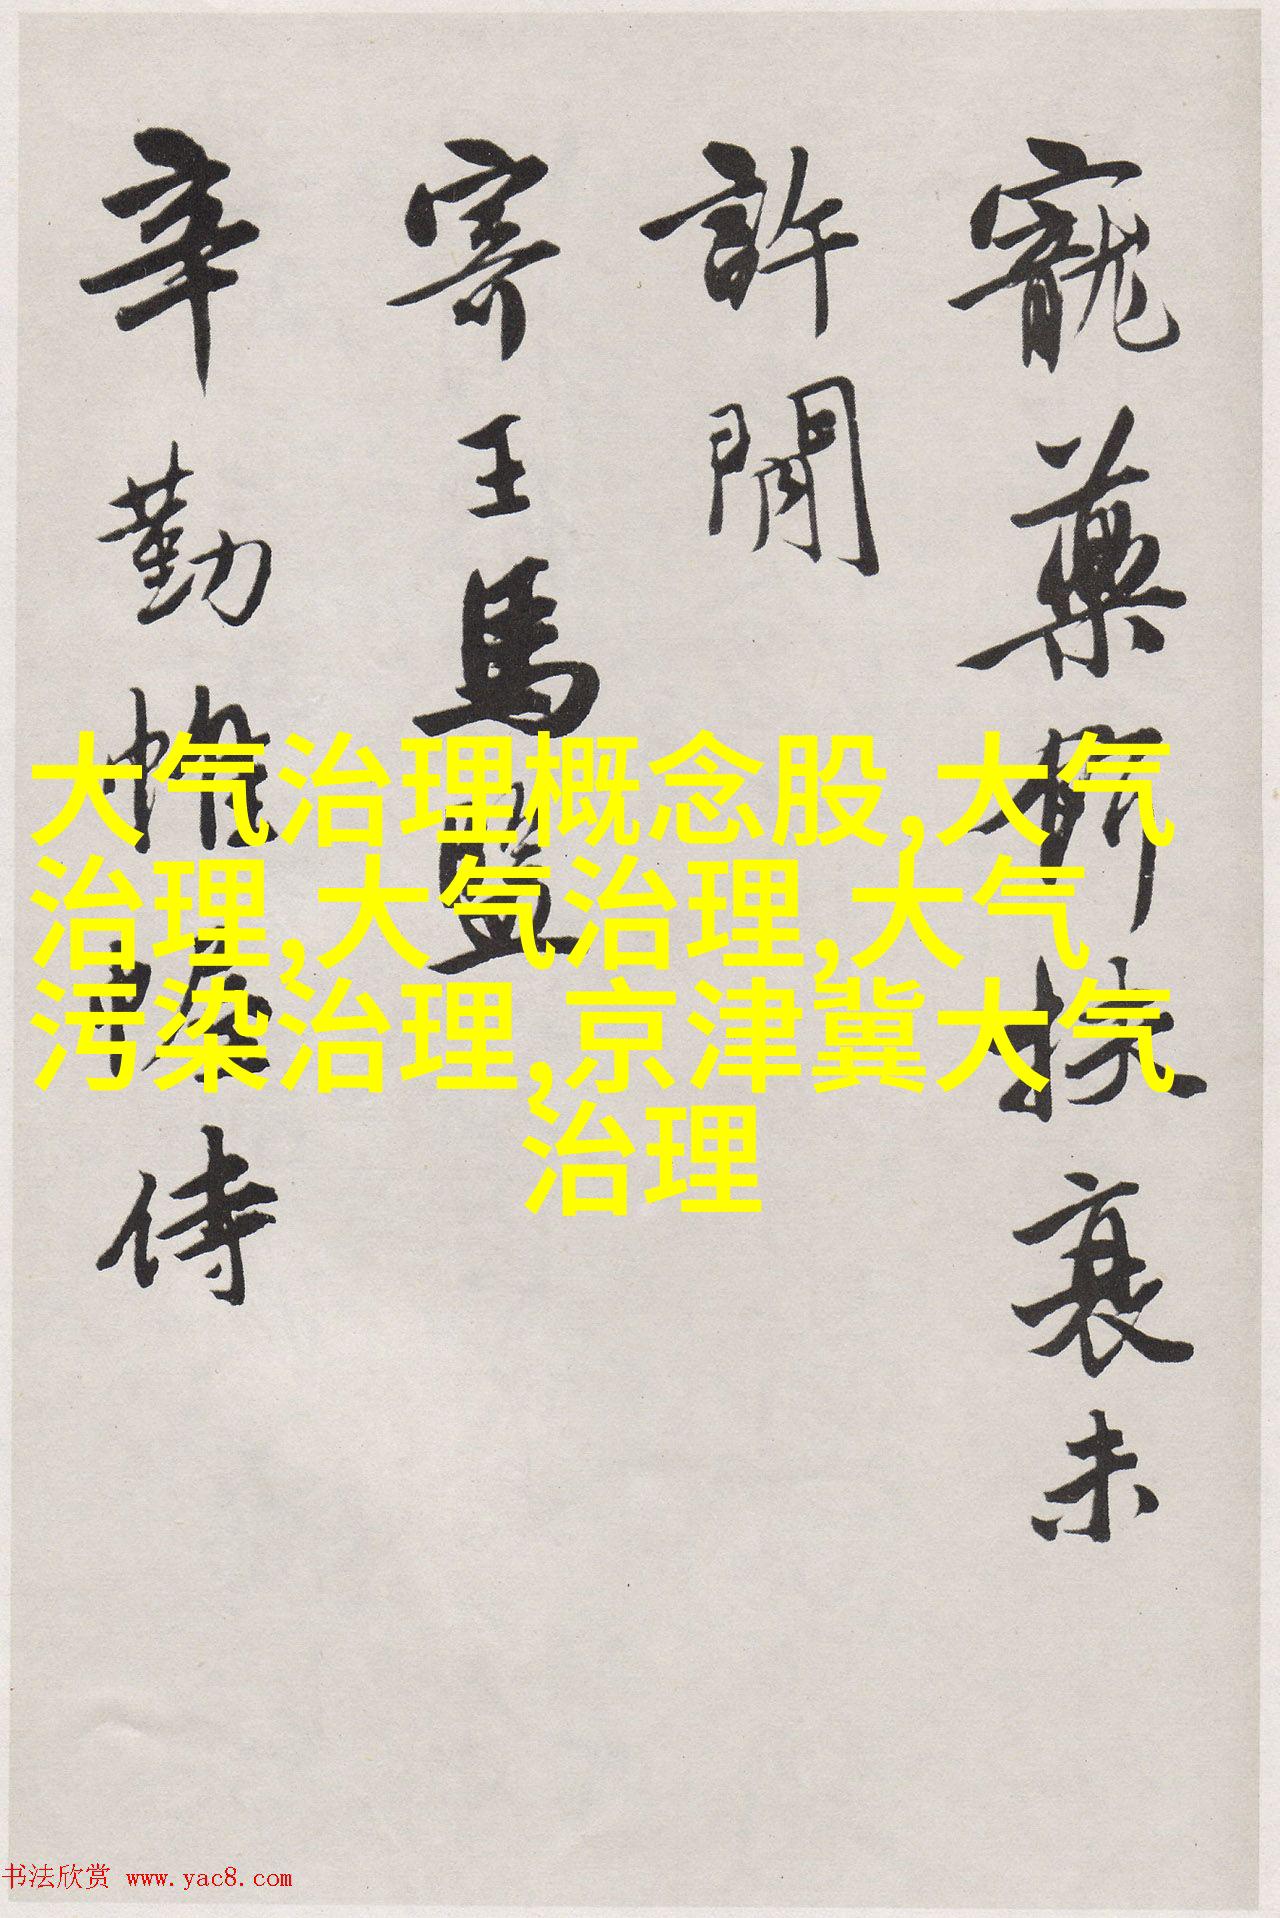 寵藥斯扶衰未
許閒
寄王馬監
辛勤帷幄侍
大气治理概念股,大气
治理,大气治理,大气
污染治理,京津冀大气
治理
书法欣赏 www.yac8.com